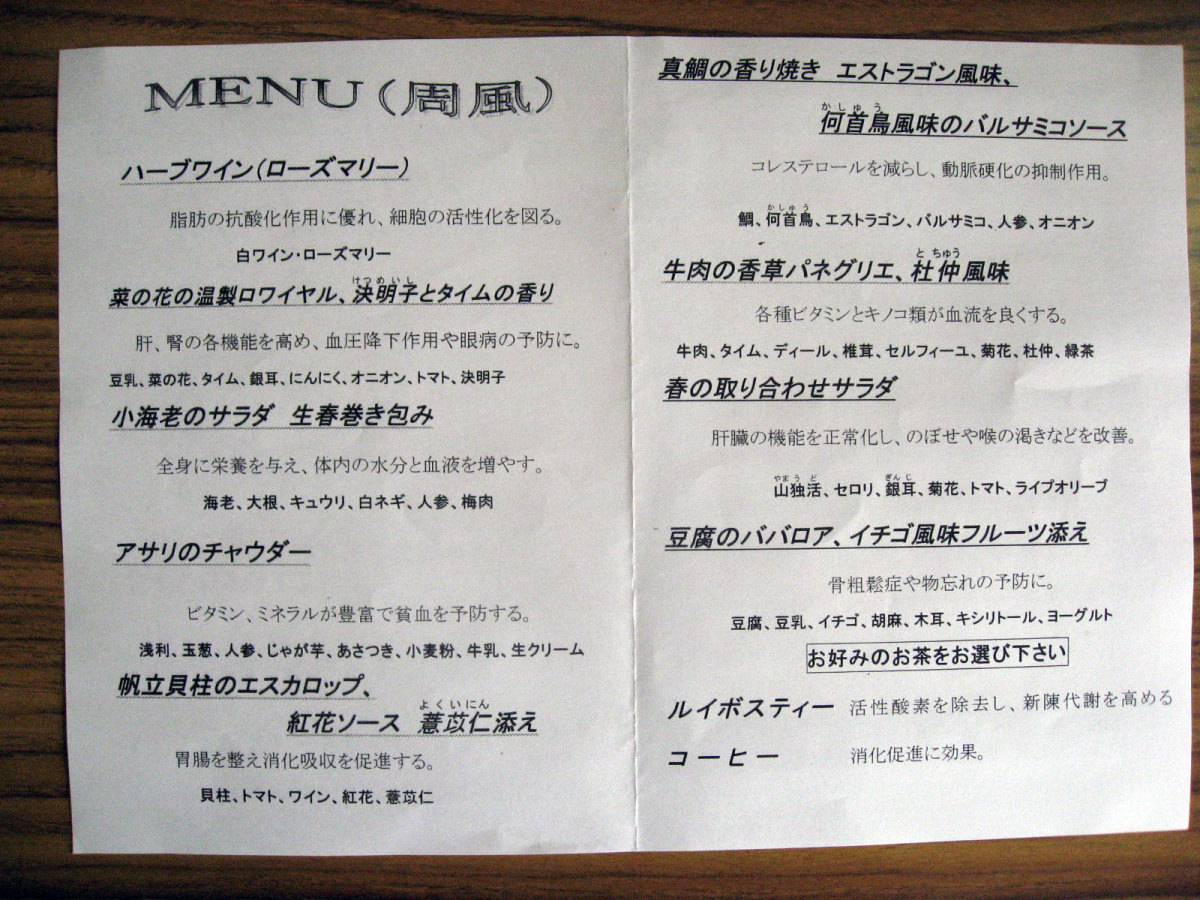 MENU(周風)
ハーブワイン(ローズマリー)
脂肪の抗酸化作用に優れ、細胞の活性化を図る。
白ワイン・ローズマリー
けつめいし
菜の花の温製ロワイヤル、決明子とタイムの香り
肝、腎の各機能を高め、血圧降下作用や眼病の予防に。
豆乳、菜の花、タイム、銀耳、にんにく、オニオン、トマト、決明子
小海老のサラダ 生春巻き包み
全身に栄養を与え、体内の水分と血液を増やす。
海老、大根、キュウリ、白ネギ、人参、梅肉
アサリのチャウダー
ビタミン、ミネラルが豊富で貧血を予防する。
浅利、玉葱、人参、じゃが芋、あさつき、小麦粉、牛乳、生クリーム
帆立貝柱のエスカロップ、
よくいにん
紅花ソース 薏苡仁添え
胃腸を整え消化吸収を促進する。
貝柱、トマト、ワイン、紅花、薏苡仁
真鯛の香り焼き エストラゴン風味、
かしゅう
何首烏風味のバルサミコソース
コレステロールを減らし、動脈硬化の抑制作用。
かしゅう
鯛、何首烏、エストラゴン、バルサミコ、人参、オニオン
とちゅう
牛肉の香草パネグリエ、杜仲風味
各種ビタミンとキノコ類が血流を良くする。
牛肉、タイム、ディール、椎茸、セルフィーユ、菊花、杜仲、緑茶
春の取り合わせサラダ
肝臓の機能を正常化し、のぼせや喉の渇きなどを改善。
やまうど ぎんじ
山独活、セロリ、銀耳、菊花、トマト、ライプオリーブ
豆腐のババロア、イチゴ風味フルーツ添え
骨粗鬆症や物忘れの予防に。
豆腐、豆乳、イチゴ、胡麻、木耳、キシリトール、ヨーグルト
お好みのお茶をお選び下さい
ルイボスティー 活性酸素を除去し、新陳代謝を高める
コーヒー 消化促進に効果。